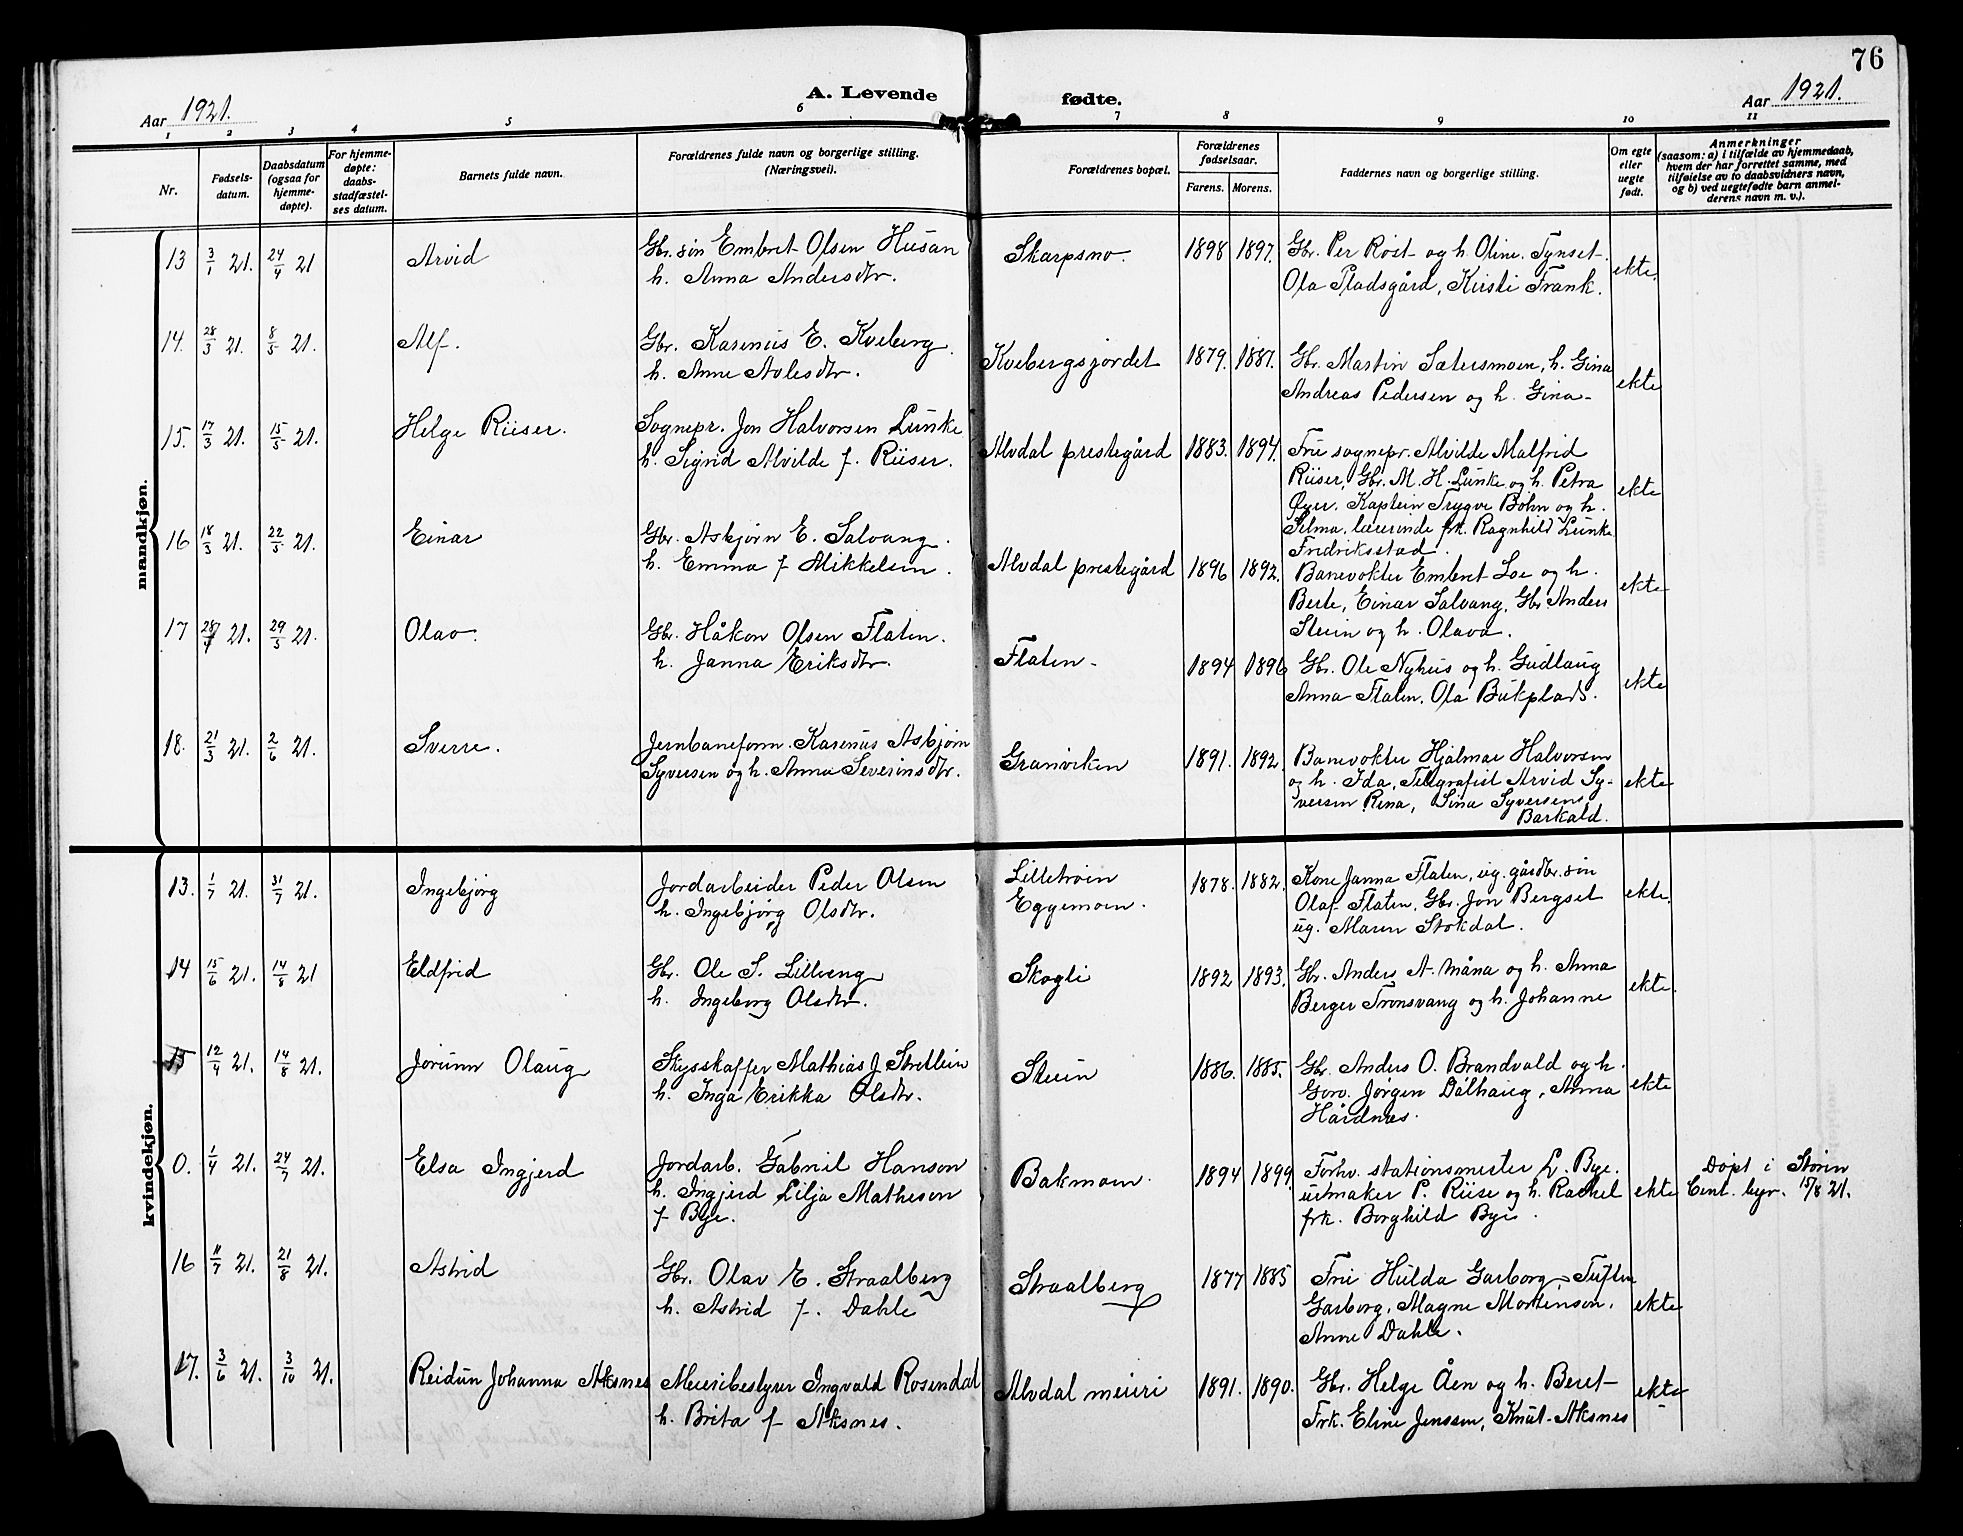 76
Aar 1921.
A. Levende
fødte.
Aar 1921.
1 2 3 4 5 6 7 8 9 10 11
Nr.
Fødsels-
datum.
Daabsdatum
(ogsaa for
hjemme-
døpte).
For hjemme-
døpte:
daabs-
stadfæstel-
ses datum.
Barnets fulde navn.
Forældrenes fulde navn og borgerlige stilling.
(Næringsvei).
Forældrenes bopæl.
Forældrenes
fødselsaar.
Farens. Morens.
Faddernes navn og borgerlige stilling.
Om egte
eller
uegte
født.
Anmerkninger
(saasom: a) i tilfælde av hjemmedaab,
hvem der har forrettet samme, med
tilføielse av to daabsvidners navn,
og b) ved uegtefødte barn anmel-
derens navn m. v.).
mandkjøn.
13 3/1 21. 24/4 21 Arvid Gbr. søn Embret Olsen Husan Skarpsno. 1898 1897. Gbr. Per Røst og h. Oline Tynset. ekte.
h. Anna Andersdtr. Ola Pladsgård, Kirsti Frank.
14. 28/3 21. 8/5 21. Alf. Gbr. Karenius E. Kveberg. Kvebergsjordet 1879. 1887. Gbr. Martin Sætersmoen, h. Gina ekte
h. Anne Avlesdtr. Andreas Pedersen og h. Gina
15. 17/3 21. 15/5 21. Helge Riiser. Sognepr. Jon Halvorsen Lunke Alvdal prestegård 1883. 1894. Fru sognepr. Alvilde Malfrid ekte
h. Sigrid Alvilde f. Riiser. Riiser, Gbr. M. H. Lunke og h. Petra
Øyer. Kaptein Trygve Bohn og h.
Selma, lærerinde frk. Ragnhild Lunke
Fredriksstad.
16 18/3 21. 22/5 21. Einar Gbr. Asbjørn E. Salvang. Alvdal prestegård 1896 1892. Banevokter Embret Loe og h. ekte
h. Emma f Mikkelsen. Berte, Einar Salvang, Gbr Anders
Steien og h. Olava.
17 28/4 21. 29/5 21. Olav. Gbr. Håkon Olsen Flaten. Flaten 1894 1896 Gbr. Ole Nyhus og h. Gudlaug ekte
h. Janna Eriksdtr. Anna Flaten. Ola Bukplads.
18. 21/3 21. 2/6 21. Sverre. Jernbaneform. Karenius Asbjørn Granviken 1891. 1892. Banevokter Hjalmar Halvorsen ekte
Syversen og h. Anna Severinsdtr. og h. Ida, Telegrafist Arvid Sy-
versen Rena, Sina Syversens
Barkald.
kvindekjøn.
13. 1/7 21. 31/7 21. Ingebjørg Jordarbeider Peder Olsen Lilletrøen 1878. 1882. Kone Janna Flaten, ug. gårdbr. søn ekte.
h. Ingebjørg Olsdtr. Eggemoen. Olaf Flaten, Gbr. Jon Bergset
ug. Maren Stokdal.
14 15/6 21. 14/8 21 Eldfrid Gbr. Ole S. Lilleeng Skogli 1892 1893. Gbr. Anders A. Måna og h. Anna ekte.
h. Ingeborg Olsdtr. Berger Tronsvang og h. Johanne
15 12/4 21. 14/8 21. Jorunn Olaug Skysskaffer Mathias J. Strellein Steien 1886. 1885. Gbr. Anders O. Brandvold og h. ekte
h. Inga Erikka Olsdtr. Goro. Jørgen Dølhaug, Anna
Hårdnes.
0. 1/4 21. 24/7 21. Elsa Ingjerd Jordarb. Gabriel Hanson Bakmoen. 1894 1899. Forhv. stationsmester L. Bye. ekte Døpt i Støren
h. Ingjerd Lilja Matheson urmaker P. Riise og h. Rachel Cent. byr. 15/8 21.
f. Bye. frk. Borghild Bye.
16 11/7 21. 21/8 21. Astrid Gbr. Olav E. Straalberg Straalberg 1877 1885 Fru Hulda Garborg, Tuften ekte
h. Astrid f. Dahle Garborg, Magne Mortenson.
Anne Dahle.
17. 3/6 21. 3/10 21. Reidun Johanna Aksnes Meieribestyrer Ingvald Rosendal Alvdal meieri 1891. 1890. Gbr. Helge Åen og h. Beret ekte
h. Brita f Aksnes. Frk. Eline Jenssen, Knut Aksnes